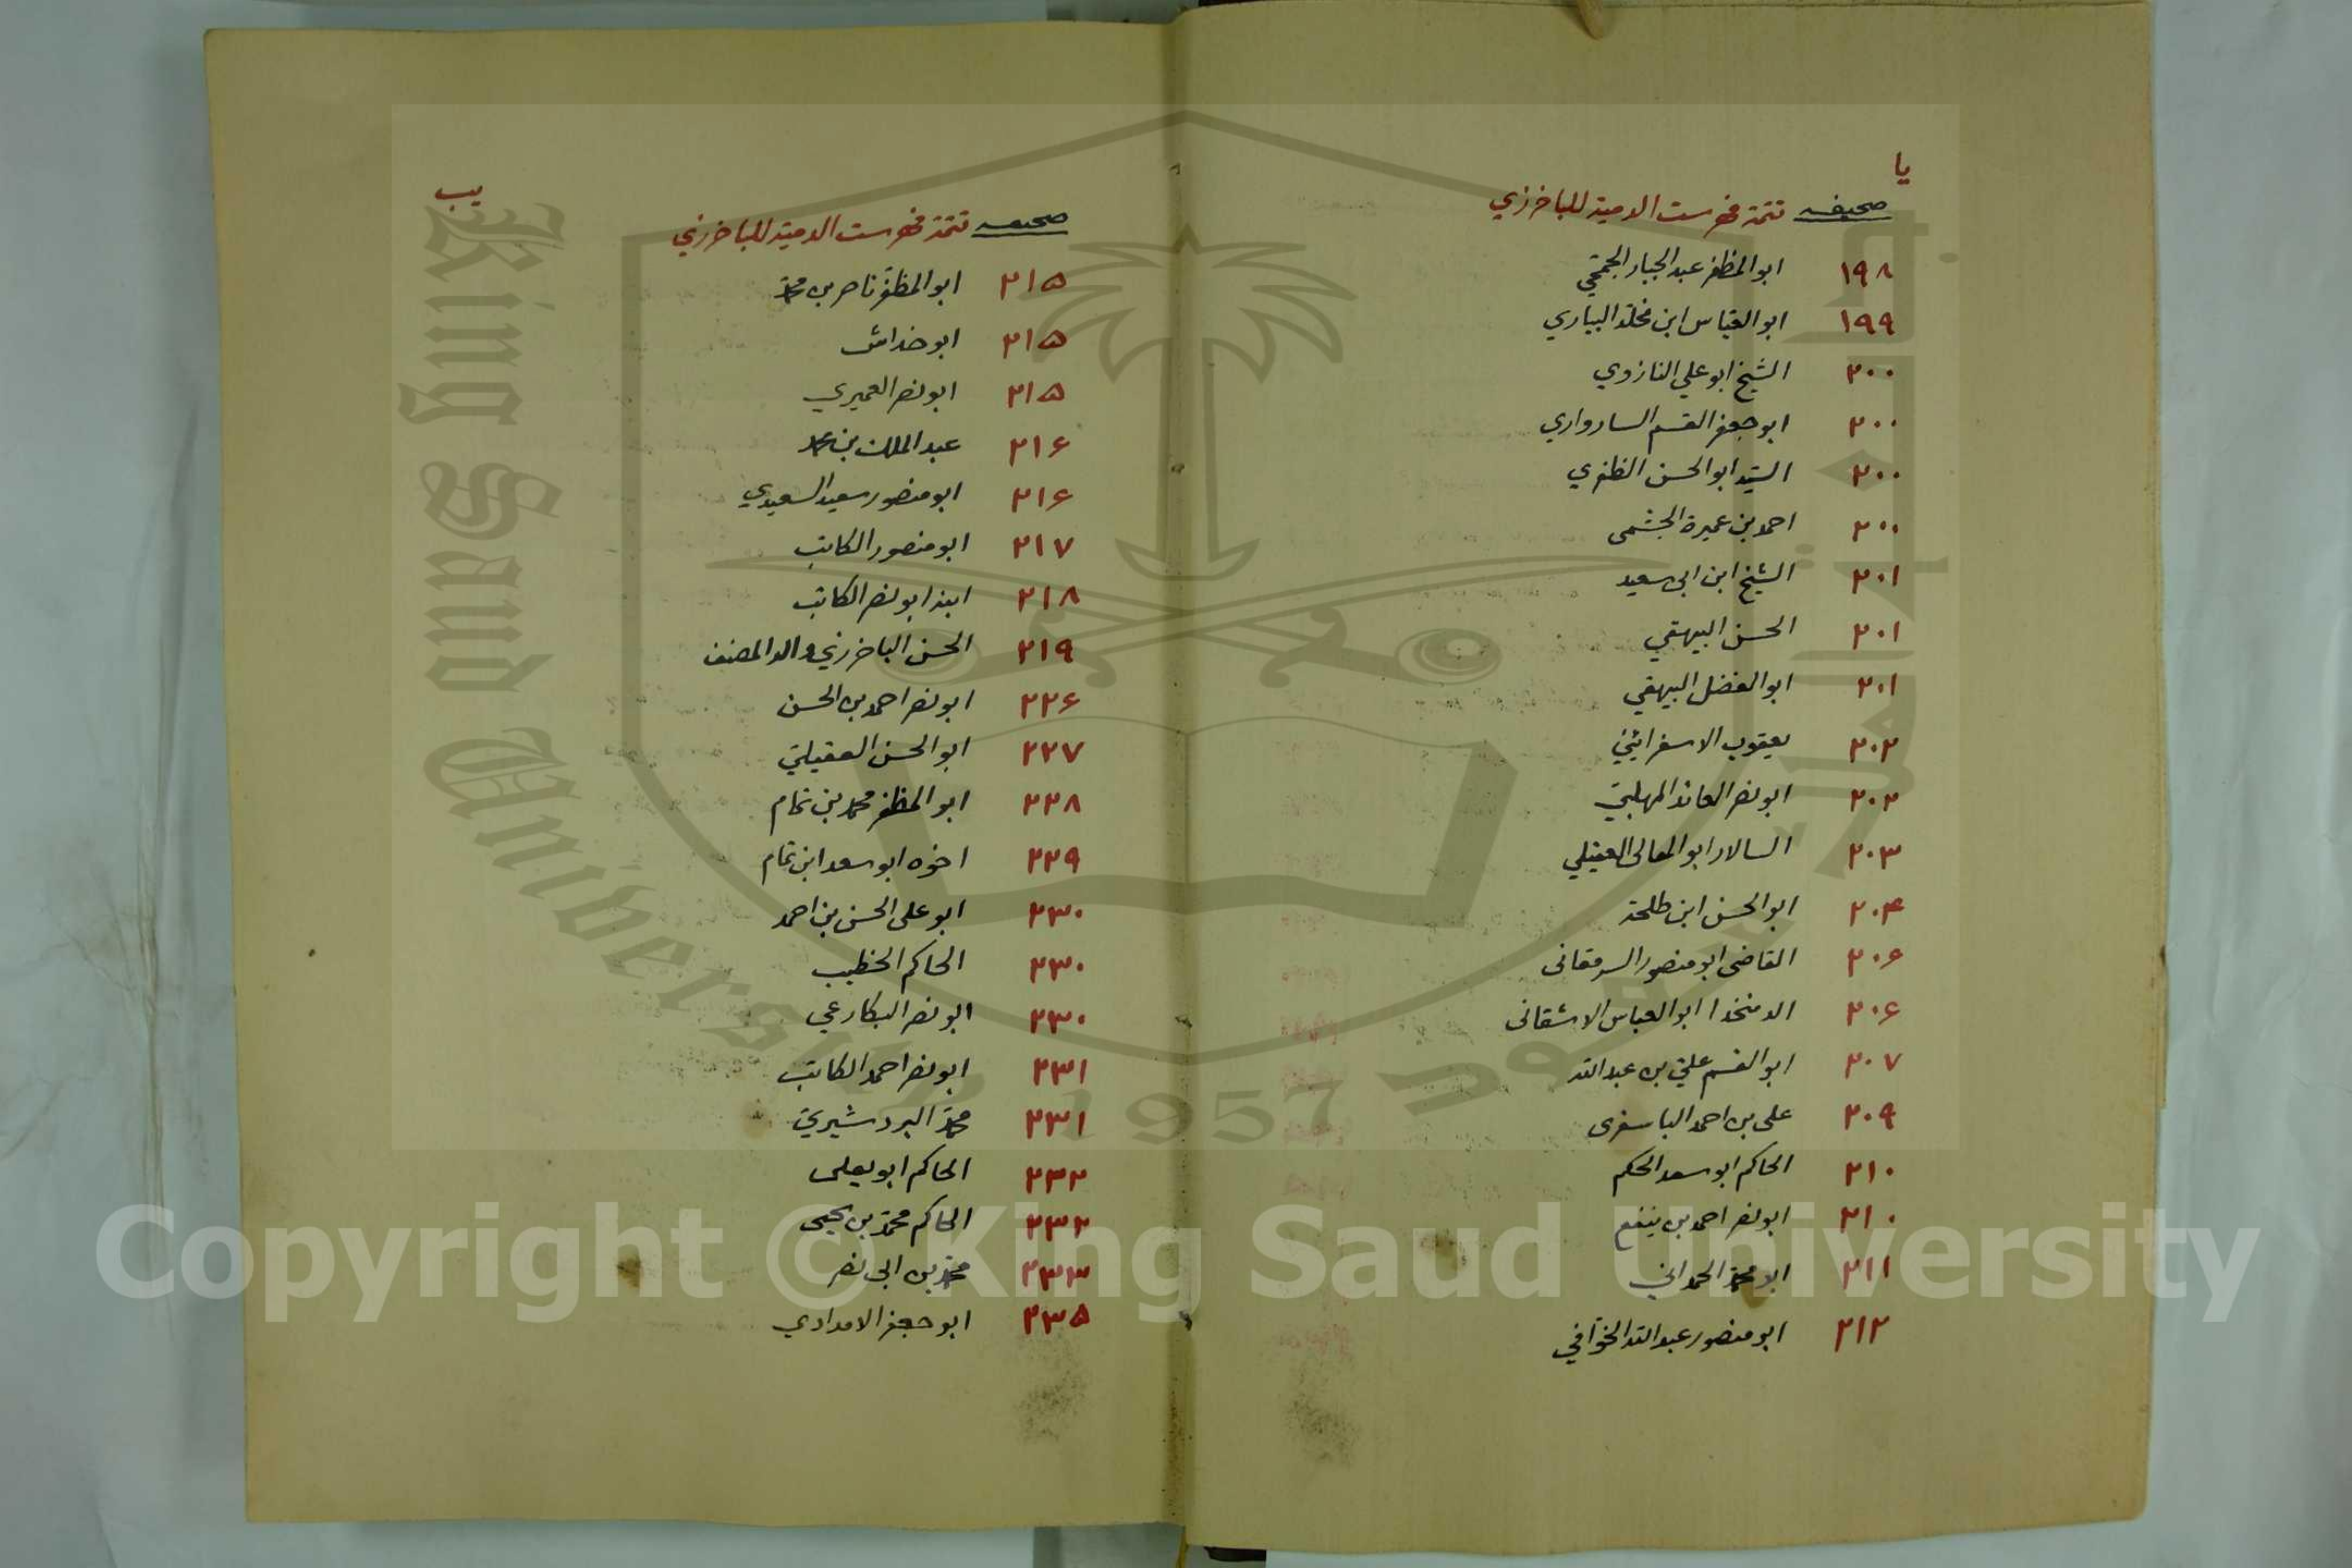 يا
صحيفه تتمة فهرست الدمية للباخرزي
١٩٨ ابو المظفر عبد الجبار الجمحي
١٩٩ ابو العباس ابن مخلد البياري
٢٠٠ الشيخ ابو علي النازوي
٢٠٠ ابو جعفر القسم السارواري
٢٠٠ السيد ابو الحسن الظفري
٢٠٠ احمد بن عميرة الجشمى
٢٠١ الشيخ ابن ابى سعيد
٢٠١ الحسن البيهقي
٢٠١ ابو الفضل البيهقي
٢٠٢ يعقوب الاسفرائيني
٢٠٢ ابو نصر المهلبي
٢٠٣ السالار ابو المعالى العقيلي
٢٠۴ ابو الحسن ابن طلحة
٢٠۶ القاضى ابو منصور السمقانى
٢٠۶ ابو العباس الاشقانى
٢٠٧ ابو القسم علي بن عبد الله
٢٠٩ على بن احمد الباسفرى
٢١٠ الحاكم ابو سعد الحكم
٢١٠ ابو نصر احمد بن ينفع
٢١١ محمد الحمداني
٢١٢ ابو منصور عبد الله الخوافي
يب
صحيفه تتمة فهرست الدمية للباخرزي
٢١۵ ابو المظفر ناصر بن محمد
٢١۵ ابو خداش
٢١۵ ابو نصر العميري
٢١۶ عبد الملك بن محمد
٢١۶ ابو منصور سعيد السعيدي
٢١٧ ابو منصور الكاتب
٢١٨ ابنه ابو نصر الكاتب
٢١٩ الحسن الباخرزي والد المصنف
٢٢۶ ابو نصر احمد بن الحسن
٢٢٧ ابو الحسن العقيلي
٢٢٨ ابو المظفر محمد بن تمام
٢٢٩ اخوه ابو سعد ابن تمام
٢٣٠ ابو على الحسن بن احمد
٢٣٠ الحاكم الخطيب
٢٣٠ ابو نصر البكارعي
٢٣١ ابو نصر احمد الكاتب
٢٣١ محمد البردشيري
٢٣٢ الحاكم ابو يعلى
٢٣٢ الحاكم محمد بن يحيى
٢٣٣ محمد بن ابى نصر
٢٣۵ ابو جعفر الامدادي
King Saud University
1957
Copyright © King Saud University